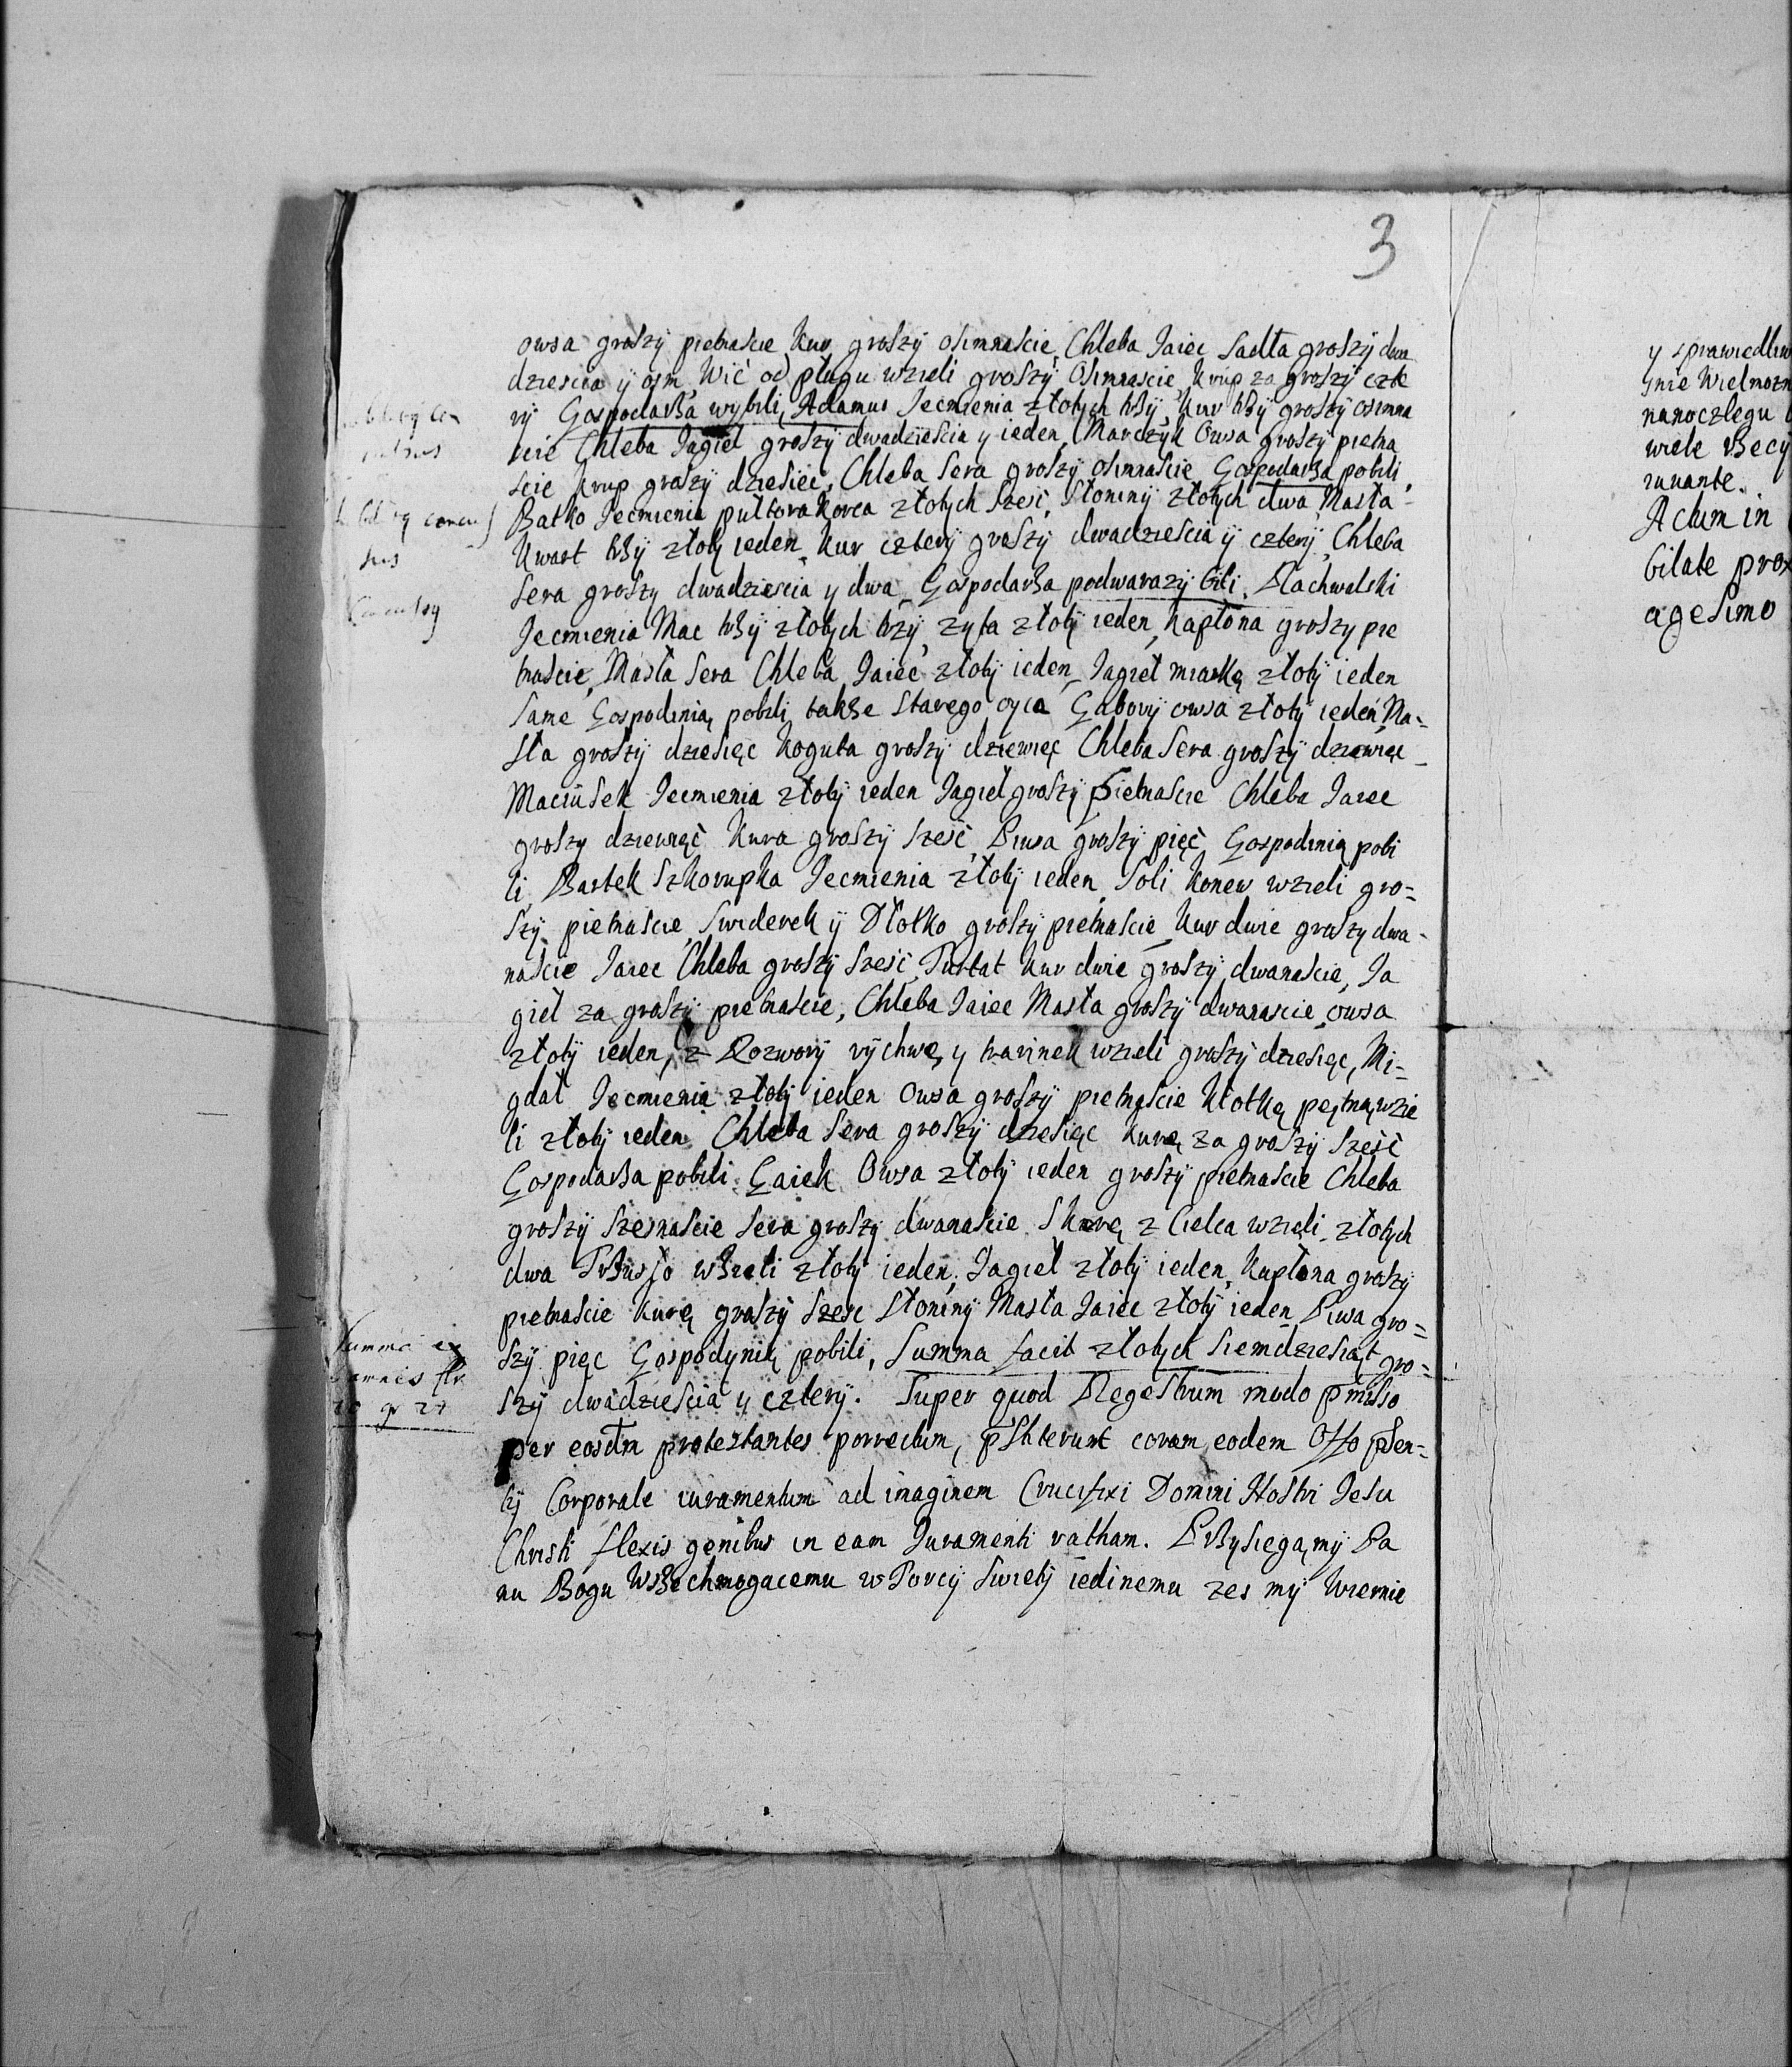 3
owsa groszÿ pietnascie Kur groszÿ osimnascie, Chleba Jaiec Sadła groszÿ dwa
dziescia ÿ osm Wić od pługu wzieli groszÿ Osimnascie Krup za groszÿ czte
rÿ Gospodarza wybili, Adamus Jecmienia złotych trzÿ, Kur trzÿ groszÿ osimna
scie Chleba Jagieł groszÿ dwadziescia y ieden, Marczyk Owsa groszÿ pietna
scie Krup groszÿ dziesiec, Chleba Sera groszÿ osimnascie Gospodarza pobili,
Batko Jecmienia pułtora Korca złotych szesć, Słoninÿ złotych dwa Masła
Kwart trzÿ złotÿ ieden Kur czterÿ groszÿ dwadziescia ÿ czterÿ, Chleba
Sera groszy dwadziescia y dwa Gospodarza podwarazÿ bili. Rachwalski
Jecmienia Mac trzÿ złotych trzÿ, zyta złotÿ ieden, Kapłona groszy pie
tnascie, Masła Sera Chleba Jaiec złotÿ ieden, Jagieł miarkę złotÿ ieden
Same Gospodinią pobili takze Starego oyca Gaborÿ owsa złotÿ ieden Ma=
sła groszÿ dziesięc Koguta groszÿ dziewięc Chleba Sera groszÿ dziewięc
Maciusek Jecmienia złotÿ ieden Jagieł groszÿ pietnascie Chleba Jaiec
groszy dziewięć Kura groszÿ szesć, Piwa groszÿ pięć Gospodinią pobi
li, Bartek Szkorupka Jecmienia złotÿ ieden, Soli Konew wzieli gro=
szÿ pietnascie, Swiderek ÿ Dłotko groszÿ pietnascie Kur dwie groszy dwa-
nascie Jaiec Chleba groszÿ szesć, Turtat Kur dwie groszÿ dwanascie, Ja
gieł za groszÿ pietnascie, Chleba Jaiec Masła groszÿ dwanascie, owsa
złotÿ ieden, z Rozworÿ rÿchwę y trarinek wzieli groszÿ dziesięc, Mi=
gdał Jecmienia złotÿ ieden Owsa groszÿ pietnascie Kłotkę pętną wzie
li złotÿ ieden Chleba Sera groszÿ dziesięc Kurę za groszÿ szesć
Gospodarza pobili Gaiek Owsa złotÿ ieden groszÿ pietnascie Chleba
groszÿ szesnascie Sera groszÿ dwanascie Skorę z Cielca wzieli złotych
dwa wzieli złotÿ ieden, Jagieł złotÿ ieden, Kapłona groszÿ
pietnascie Kurę groszÿ szesc Słoninÿ Masła Jaiec złotÿ ieden Piwa gro=
szÿ pięc Gospodynię pobili, Summa facit złotych siemdziesiąt gro=
szÿ dwadziescia y czterÿ. Super quod Regestrum modo pmisso
per eosdm protestantes porrectum, pstiterunt coram eodem Offo psen-
tÿ Corporale iuramentum ad imaginem Crucifixi Domini Nostri Jesu
Christi flexis genibus in eam Juramenti rotham. Przysięgamÿ Pa
nu Bogu Wszechmogacemu w Torcÿ Swietÿ iedinemu zes mÿ Wiernie
Summa
gr 24
nanoczlegu
wiele
Actum in
bilate
agesimo